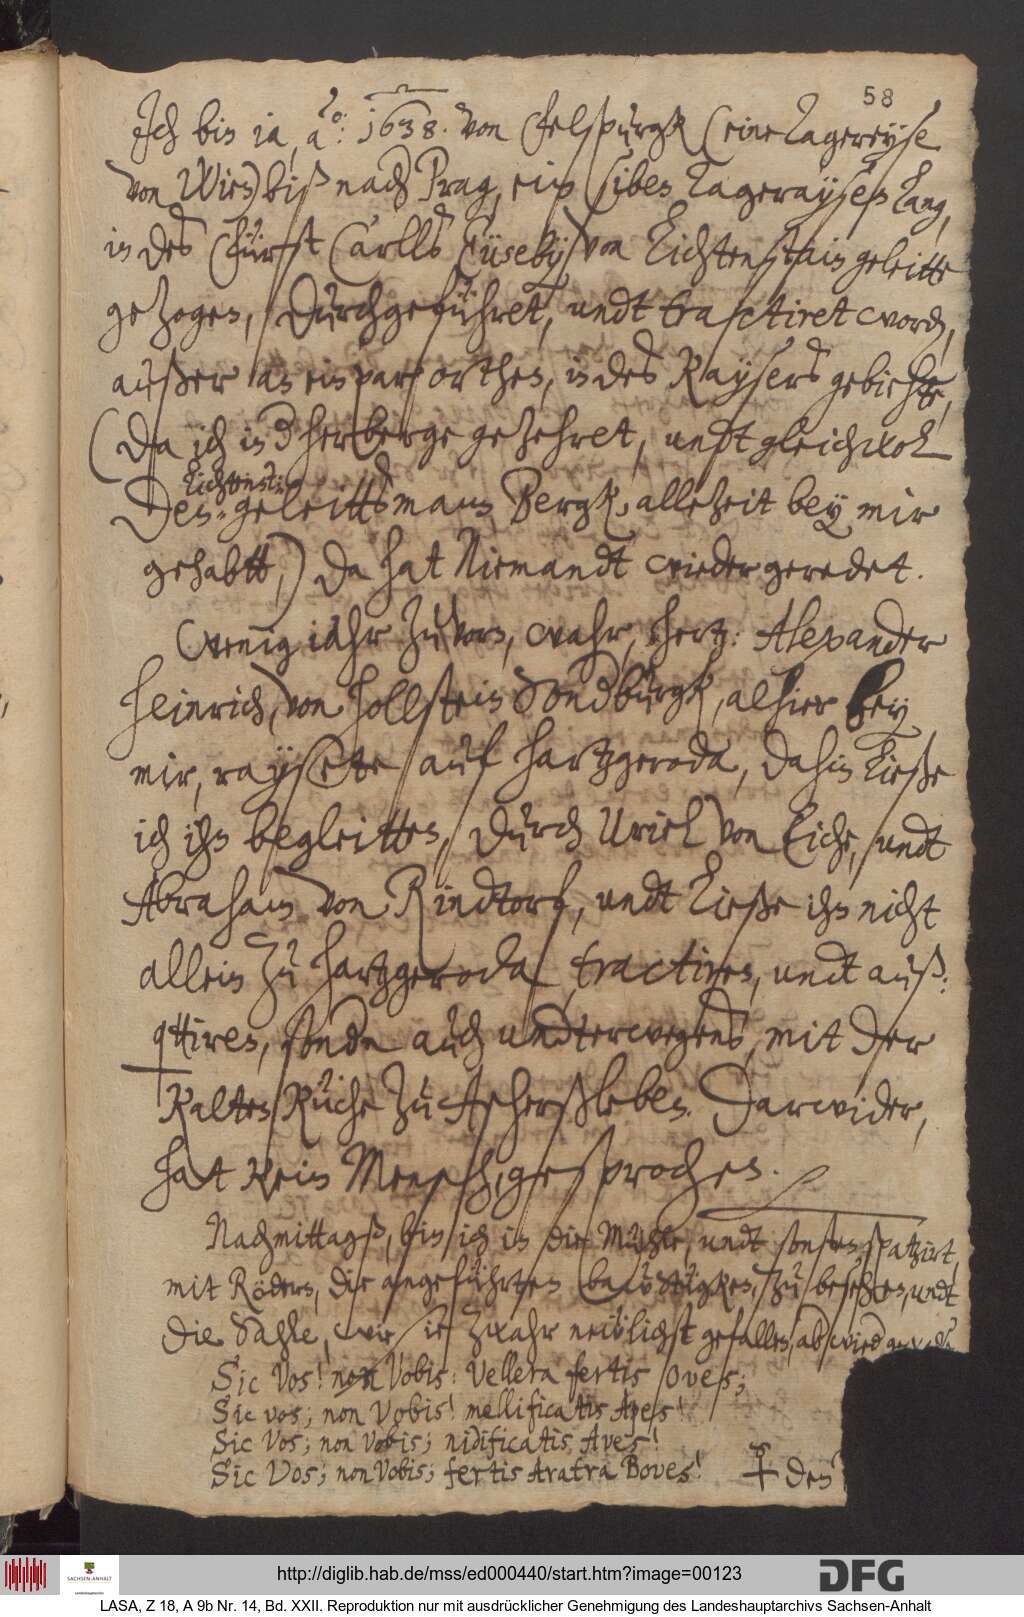 58
Ich bin ia, a.o: 1638. von Felspurgk (eine Tagereyse
von Wien) biß nach Prag, ein sieben Tagerayßen lang,
in des Fürst Carlls Eüseby, von Lichtenstain geleitte
gezogen, durchgeführet, undt tractiret word,
außer an ein par orthen, in des Kaysers gebiehte,
(da ich in d herberge gezehret, undt gleichwol
Lichtenstei:
den geleittsmann Bergk, allezeit bey mir
gehabtt,) da hat Niemandt wieder geredet.
Wenig iahr zuvorn, wahr, hertz: Alexander
Heinrich, von Hollstein Sondburgk, alhier bey
mir, raysete auf Hartzgeroda, dahin ließe
ich ihn begleitten, durch Uriel von Eiche, undt
Abraham von Rindtorf, undt ließe ihn nicht
allein zu Hartzgeroda tractiren, undt auß:
qttiren, sondn auch undterwegens, mit der
Kalten Küche zu Aschersleben. Darwider,
hat kein Mensch, gesprochen.
Nachmittagß, bin ich in die Mühle, undt sonsten spatzirt,
mit Rödern, die angeführten bawstügken, zu besehen, undt
die Sahle, wie sie zwahr neülichst gefallen, ab
Sic Vos! non Vobis: Vellera fertis Oves;
Sic vos; non Vobis! mellificatis Apes!
Sic Vos; non Vobis; nidificatis Aves!
Sic Vos; non Vobis; fertis Aratra Boves!
den
SACHSEN-ANHALT
http://diglib.hab.de/mss/ed000440/start.htm?image=00123
DFG
LASA, Z 18, A 9b Nr. 14, Bd. XXII. Reproduktion nur mit ausdrücklicher Genehmigung des Landeshauptarchivs Sachsen-Anhalt